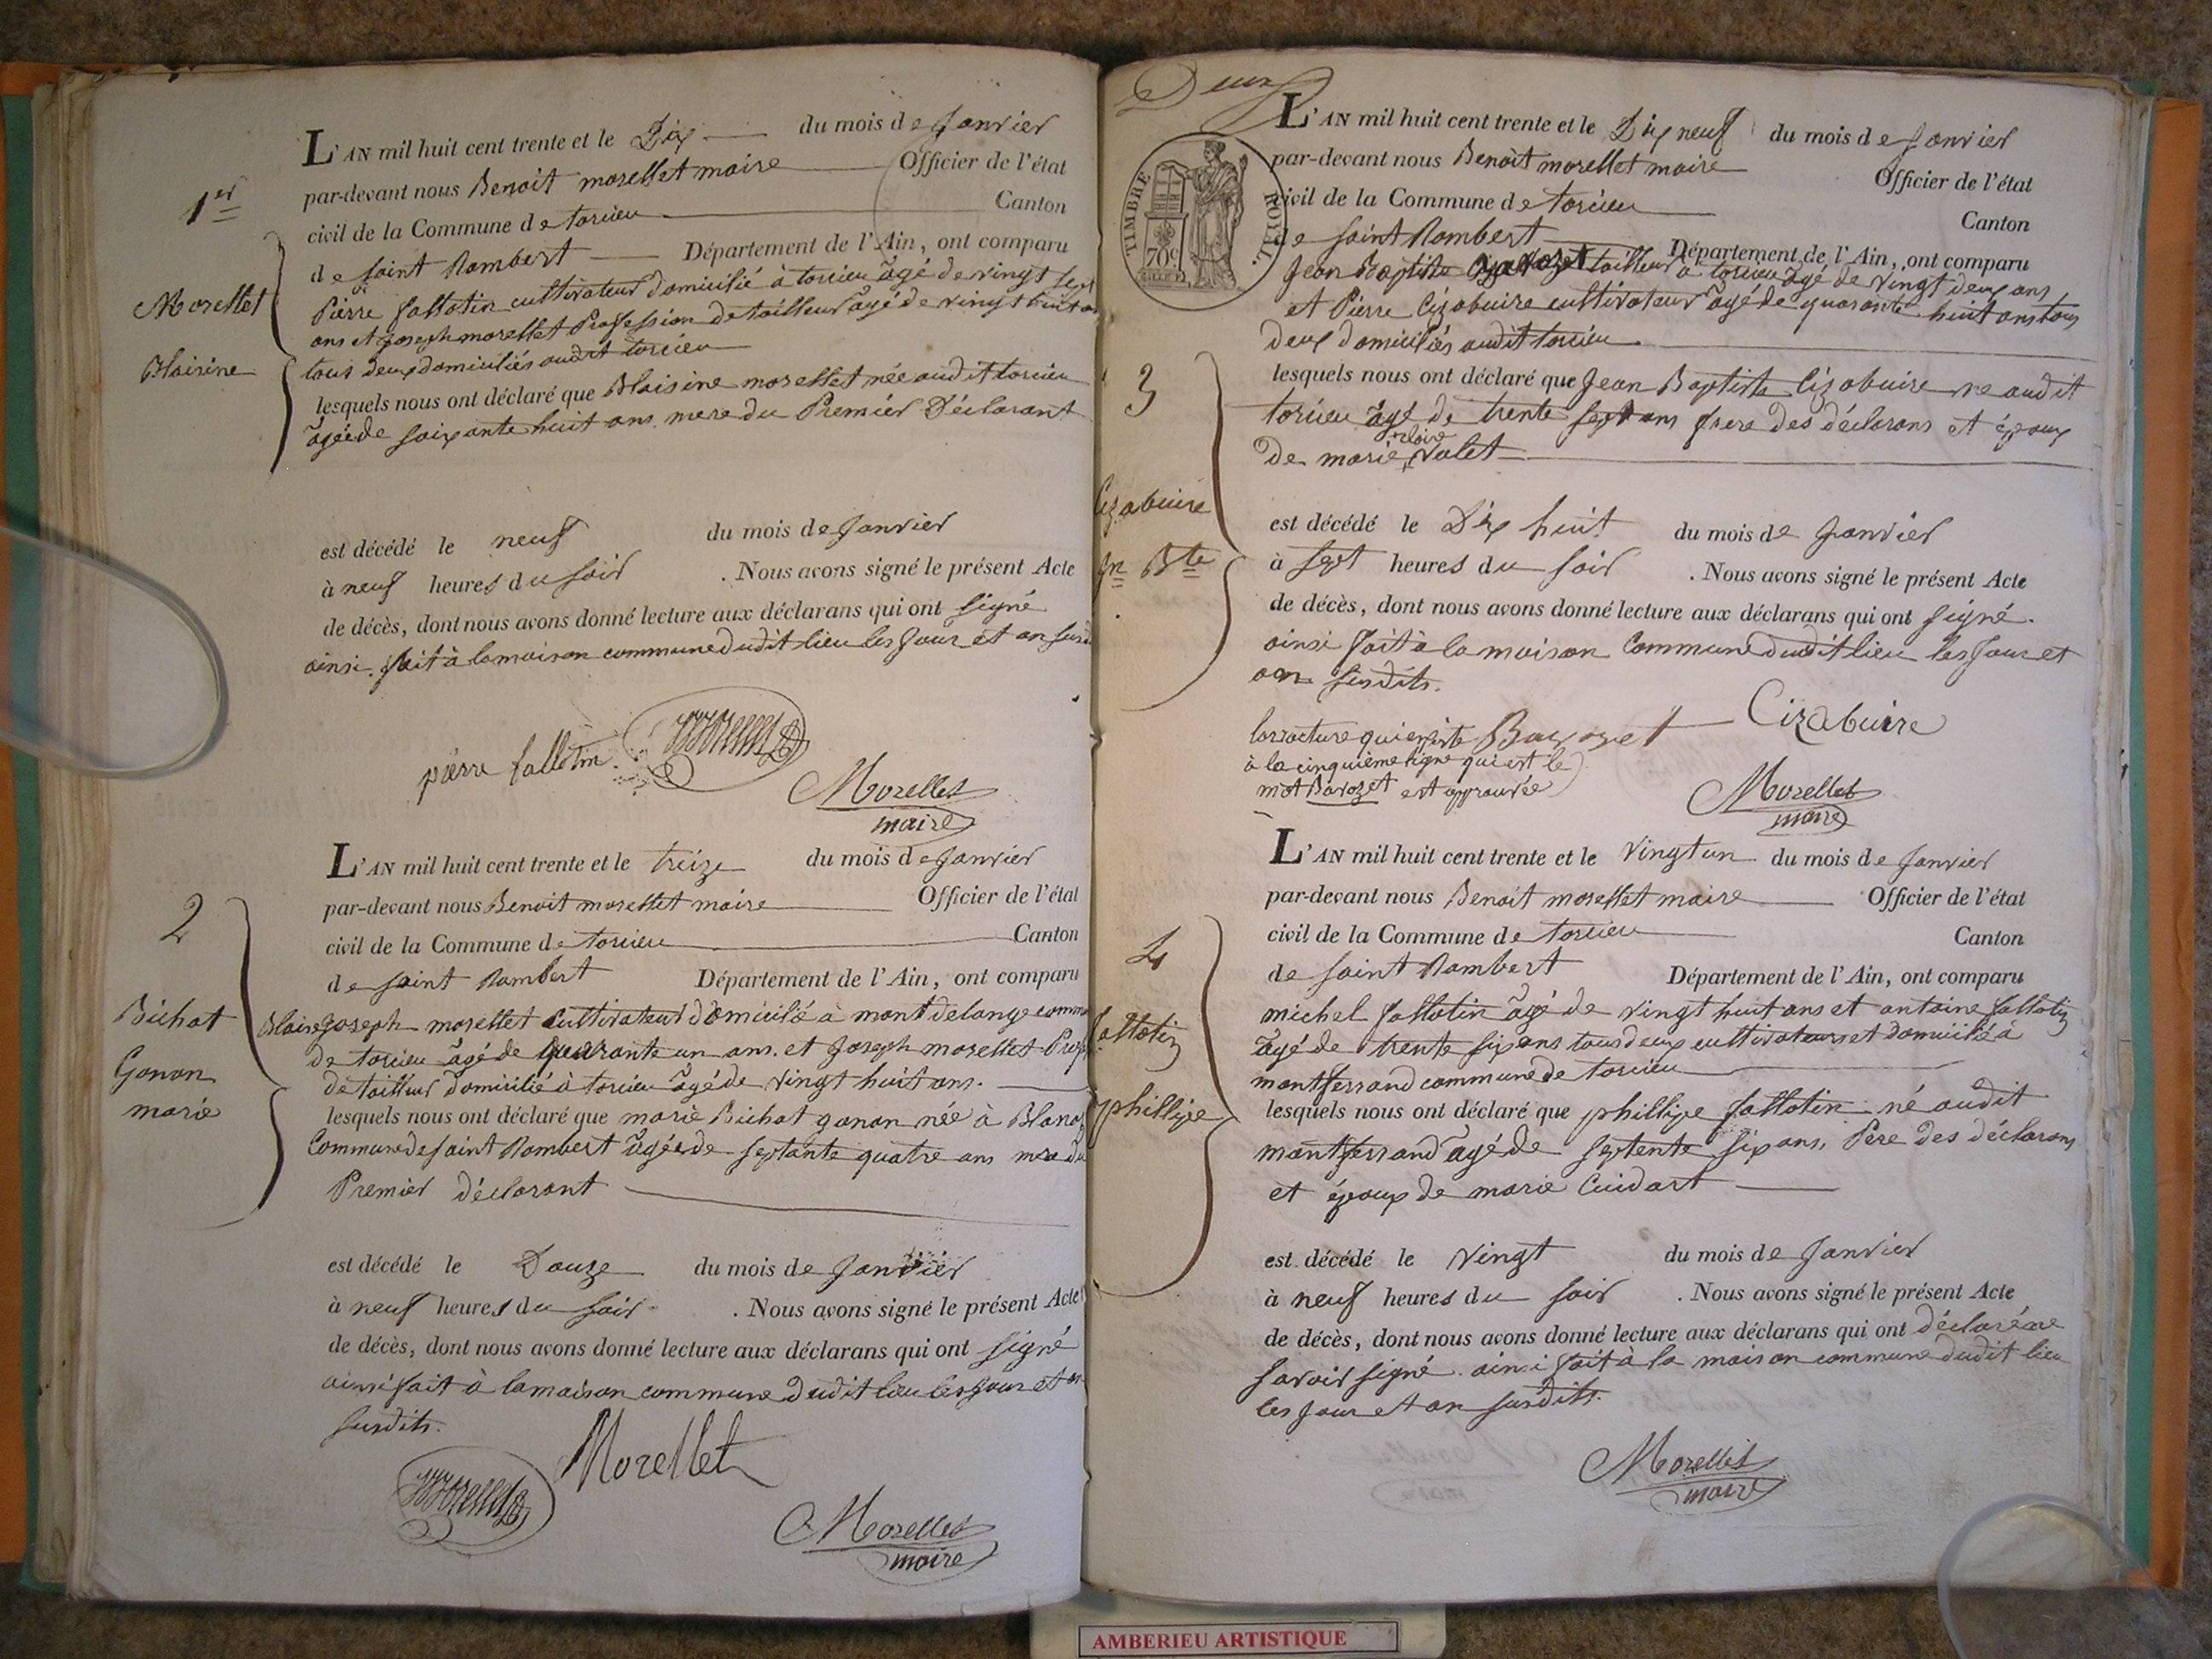 1er
Morellet
Blaisine
L'AN mil huit cent trente et le Dix du mois de Janvier
par-devant nous Benoit morellet maire Officier de l'état
civil de la Commune de torcieu Canton
de saint Rambert Département de l'Ain, ont comparu
Pierre fallotin cultivateur domicilié à torcieu âgé de vingt sept
ans et joseph morellet Profession de tailleur âgé de vingt huit ans
tous deux domiciliés audit torcieu
lesquels nous ont déclaré que Blaisine morellet née audit torcieu
âgée de soixante huit ans mere du Premier Déclarant
est décédé le neuf du mois de Janvier
à neuf heures du soir . Nous avons signé le présent Acte
de décès, dont nous avons donné lecture aux déclarans qui ont signé
ainsi fait à la maison commune dudit lieu les Jour et an susd
pierre fallotin
Morellet
maire
2
Bichat
Gonon
marie
L'AN mil huit cent trente et le treize du mois de Janvier
par-devant nous Benoit morellet maire Officier de l'état
civil de la Commune de torcieu Canton
de saint Rambert Département de l'Ain, ont comparu
Blaise joseph morellet Cultivateur domicilié à mont de lange comm
de torcieu âgé de quarante un ans. et Joseph morellet Prof
de tailleur domicilié à torcieu âgé de vingt huit ans.
lesquels nous ont déclaré que marie Bichat gonon née à
Commune de saint Rambert âgée de septante quatre ans mere du
Premier déclarant
est décédé le Douze du mois de Janvier
à neuf heures du soir . Nous avons signé le présent Acte
de décès, dont nous avons donné lecture aux déclarans qui ont signé
ainsi fait à la maison commune dudit lieu les jour et an
susdits.
Morellet
Morellet
maire
Deux
TIMBRE ROYAL.
70c
3
Cizabuire
Jn Bte
L'AN mil huit cent trente et le Dix neuf du mois de Janvier
par-devant nous Benoit morellet maire Officier de l'état
civil de la Commune de torcieu Canton
de saint Rambert Département de l'Ain, ont comparu
Jean Baptiste Bavozet tailleur à torcieu âgé de vingt deux ans
et Pierre Cizabuire cultivateur âgé de quarante huit ans tous
deux domiciliés audit torcieu.
lesquels nous ont déclaré que Jean Baptiste Cizabuire né audit
torcieu âgé de trente sept ans frere des déclarans et époux
claire
de marie Volet
est décédé le Dix huit du mois de Janvier
à sept heures du soir . Nous avons signé le présent Acte
de décès, dont nous avons donné lecture aux déclarans qui ont signé.
ainsi fait à la maison Commune dudit lieu les Jour et
an susdits.
Bavozet Cizabuire
qui existe
à la cinquième ligne qui est le
mot Bavozet est approuvée
Morellet
maire
4
fallotin
phillipe
L'AN mil huit cent trente et le Vingt un du mois de Janvier
par-devant nous Benoit morellet maire Officier de l'état
civil de la Commune de torcieu Canton
de saint Rambert Département de l'Ain, ont comparu
michel fallotin âgé de vingt huit ans et antoine fallotin
âgé de trente six ans tous deux cultivateurs et domicilié à
montferrand commune de torcieu
lesquels nous ont déclaré que phillipe fallotin né audit
montferrand âgé de septente six ans, Pere des déclarans
et époux de marie Cuidart
est décédé le Vingt du mois de Janvier
à neuf heures du soir . Nous avons signé le présent Acte
de décès, dont nous avons donné lecture aux déclarans qui ont déclaré ne
savoir signé. ainsi fait à la maison commune dudit lieu
les Jour et an susdits.
Morellet
maire
AMBERIEU ARTISTIQUE